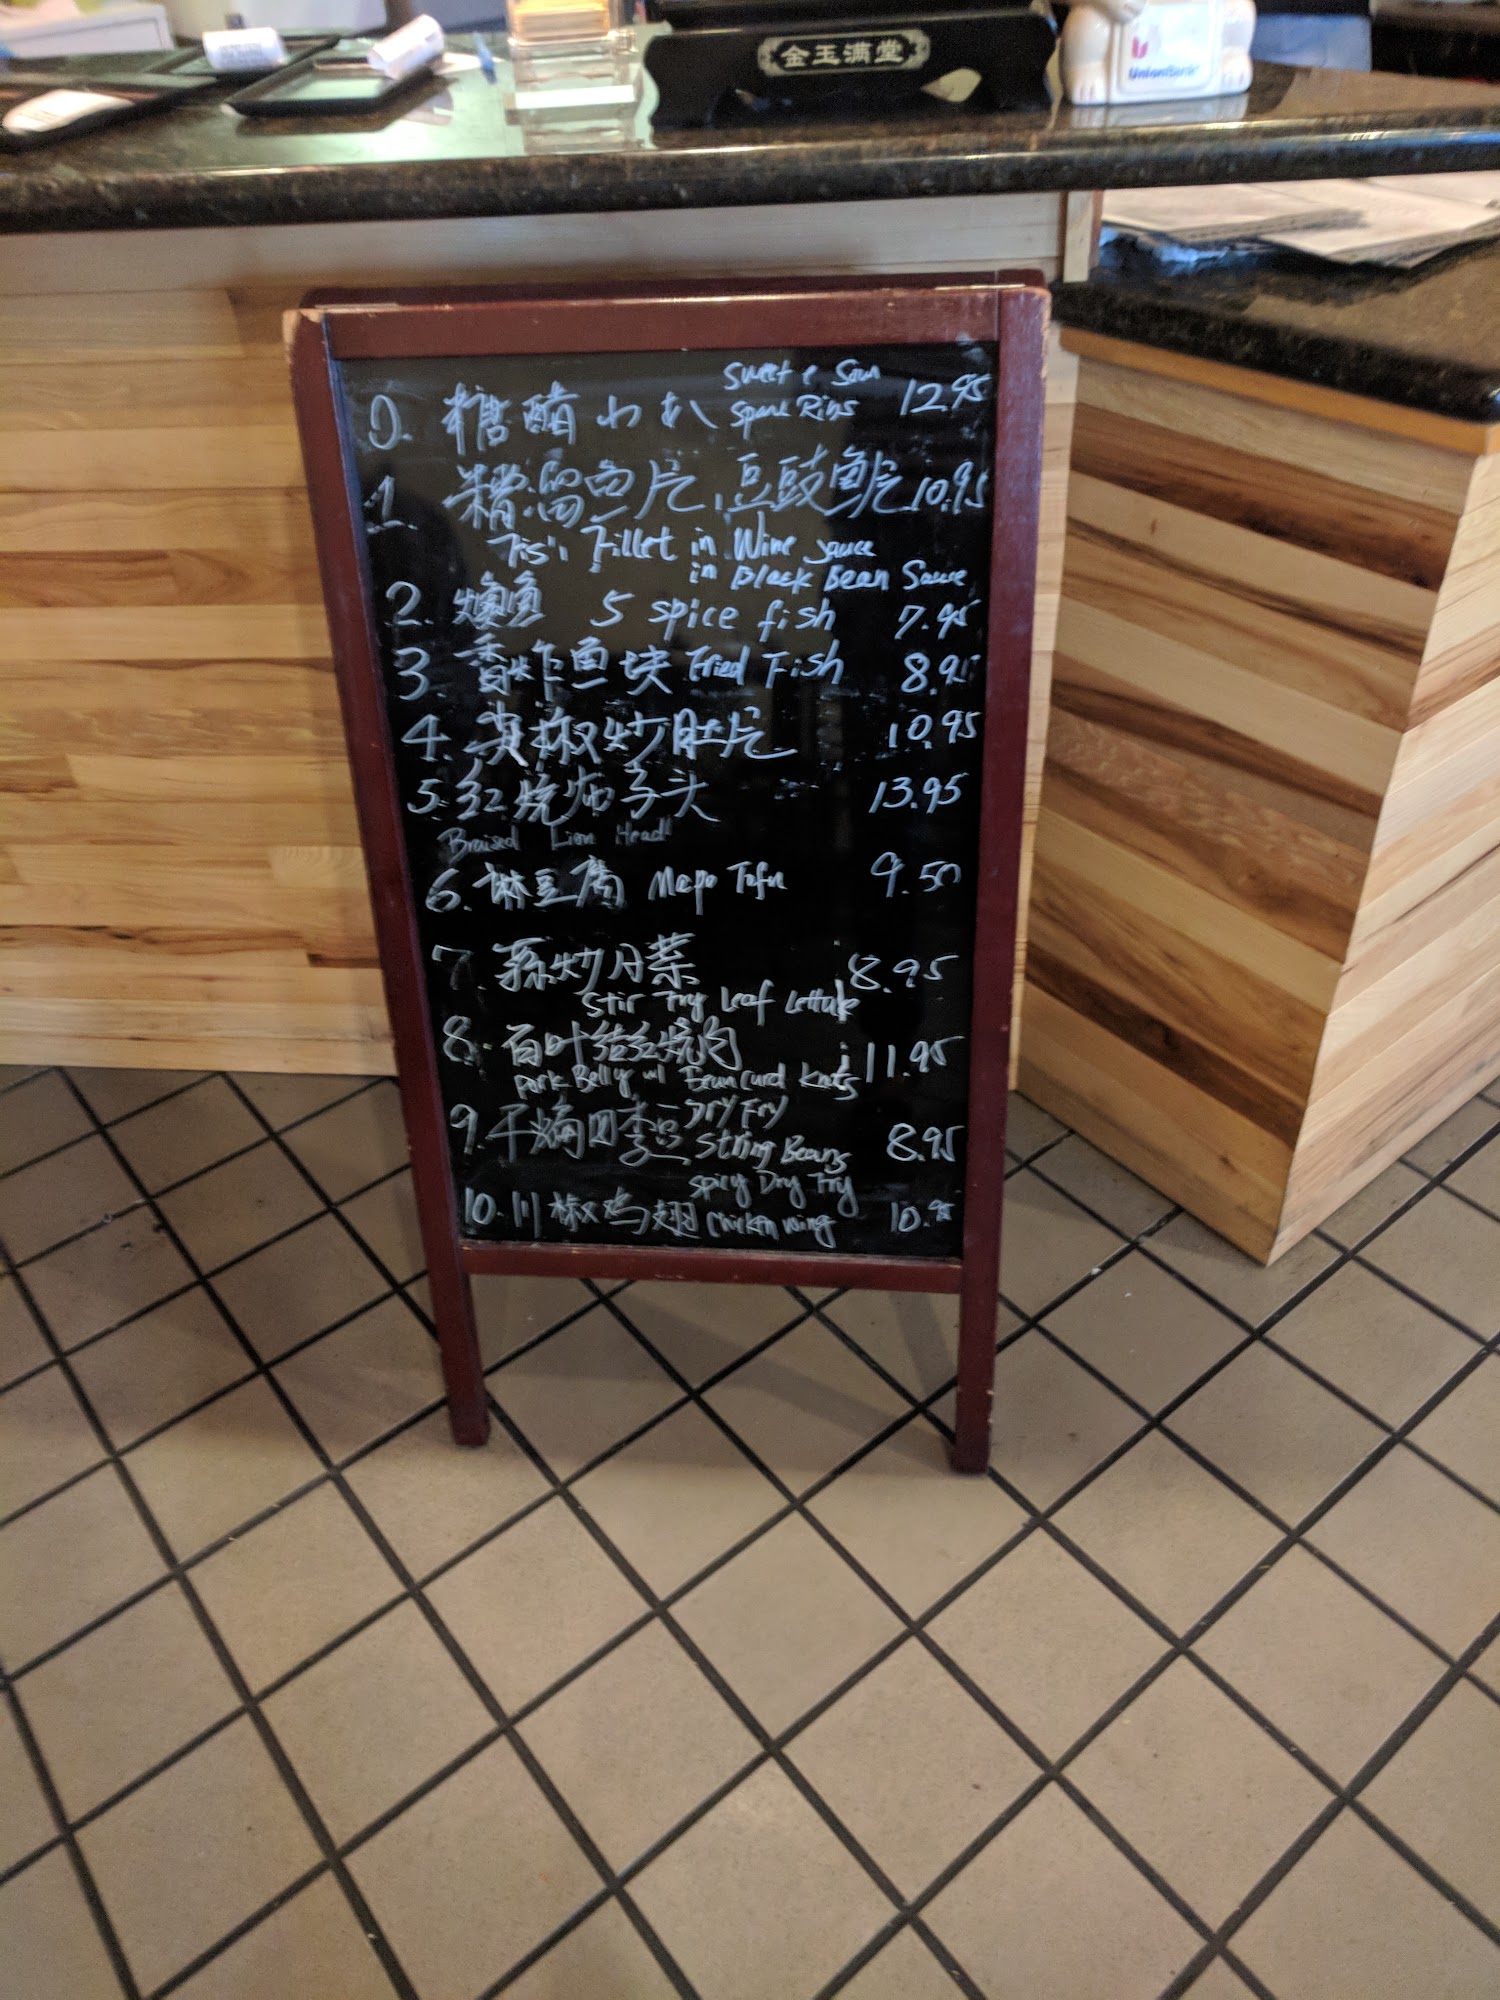 金玉满堂
UnionBank
0. 糖醋小排 Sweet & Sour Spare Ribs 12.95
1. 糟溜鱼片, 豆豉鱼片 10.95
Fish Fillet in Wine Sauce
in Black Bean Sauce
2. 燻鱼 5 spice fish 7.95
3. 香炸鱼块 Fried Fish 8.95
4. 椒炒肚片 10.95
5. 红烧狮子头 13.95
Braised Lion Head
6. 麻豆腐 Mapo Tofu 9.50
7. 蒜炒A菜 8.95
Stir Fry Leaf Lettuce
8. 百叶结红烧肉 11.95
Pork Belly w/ Bean Curd Knots
9. 干煸四季豆 Dry Fry String Beans 8.95
10. 川椒鸡翅 Spicy Dry Fry Chicken Wing 10.95